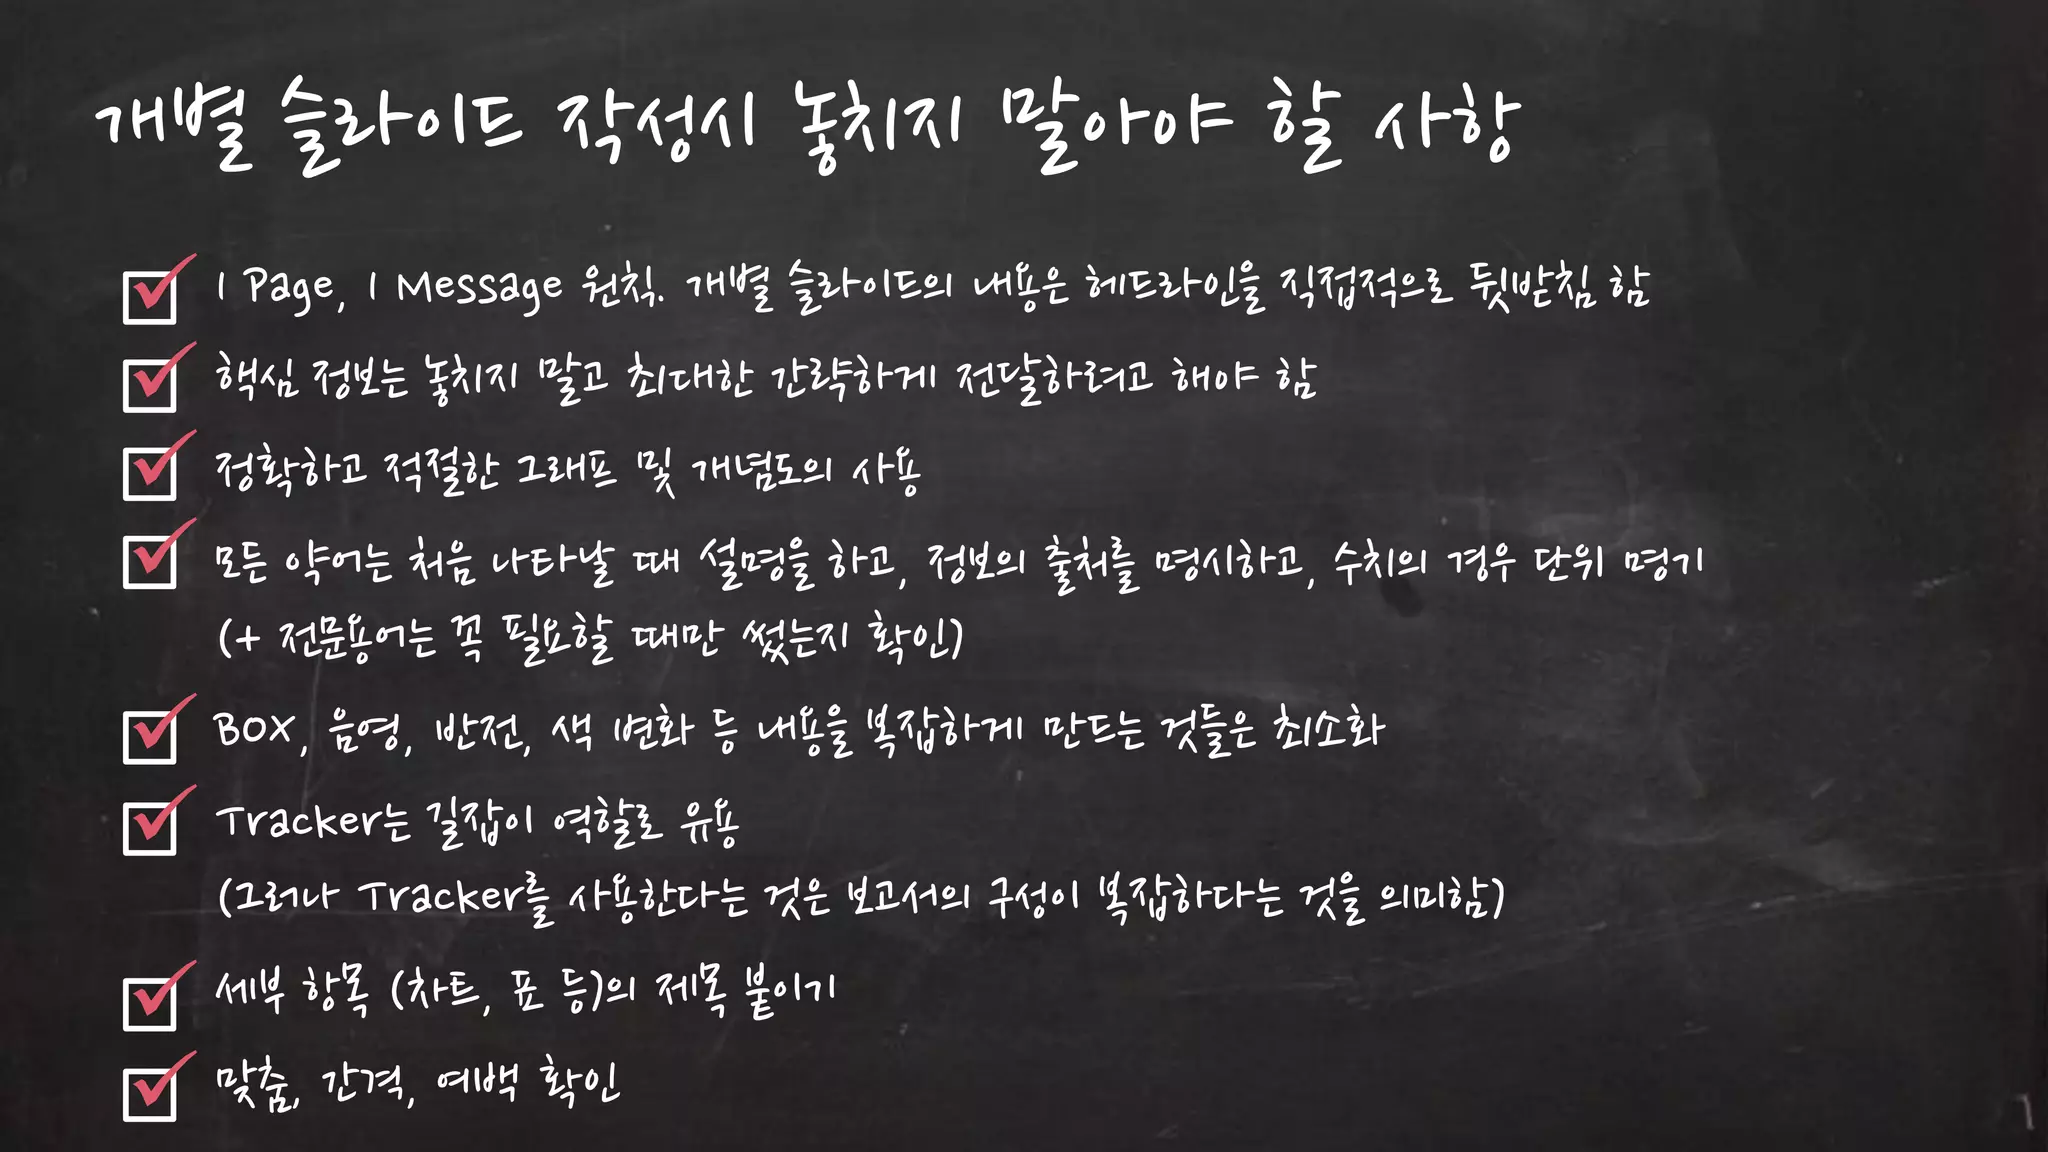 개별 슬라이드 작성시 놓치지 말아야 할 사항
1 Page, 1 Message 원칙. 개별 슬라이드의 내용은 헤드라인을 직접적으로 뒷받침 함
핵심 정보는 놓치지 말고 최대한 간략하게 전달하려고 해야 함
정확하고 적절한 그래프 및 개념도의 사용
모든 약어는 처음 나타날 때 설명을 하고, 정보의 출처를 명시하고, 수치의 경우 단위 명기
(+ 전문용어는 꼭 필요할 때만 썼는지 확인)
BOX, 음영, 반전, 색 변화 등 내용을 복잡하게 만드는 것들은 최소화
Tracker는 길잡이 역할로 유용
(그러나 Tracker를 사용한다는 것은 보고서의 구성이 복잡하다는 것을 의미함)
세부 항목 (차트, 표 등)의 제목 붙이기
맞춤, 간격, 여백 확인